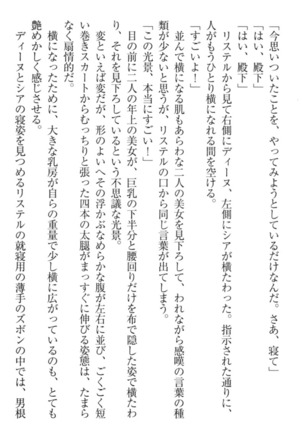 「今思いついたことを、やってみようとしているだけなんだ。さあ、寝て」
「はい、殿下」
「はい、殿下」
　リステルから見て右側にディーヌ、左側にシアが横たわった。指示された通りに、
人がもうひとり横になれる間を空ける。
「すごいよ！」
　並んで横になる肌もあらわな二人の美女を見下ろして、われながら感嘆の言葉の種
類が少ないと思うが、リステルの口から同じ言葉が出てしまう。
「この光景、本当にすごい！」
　目の前に二人の年上の美女が、巨乳の下半分と腰回りだけを布で隠した姿で横たわ
り、それを見下ろしているという不思議な光景。
　変といえば変だが、形のよいへその浮かぶなめらかな腹が左右に並び、ごくごく短
い巻きスカートからむっちりと張った四本の太腿がまっすぐに伸びる姿態は、たまら
なく扇情的だ。
　横になったために、大きな乳房が自らの重量で少し横に広がっているのも、とても
艶めかしく感じさせる。
　ディーヌとシアの寝姿を見つめるリステルの就寝用の薄手のズボンの中では、男根